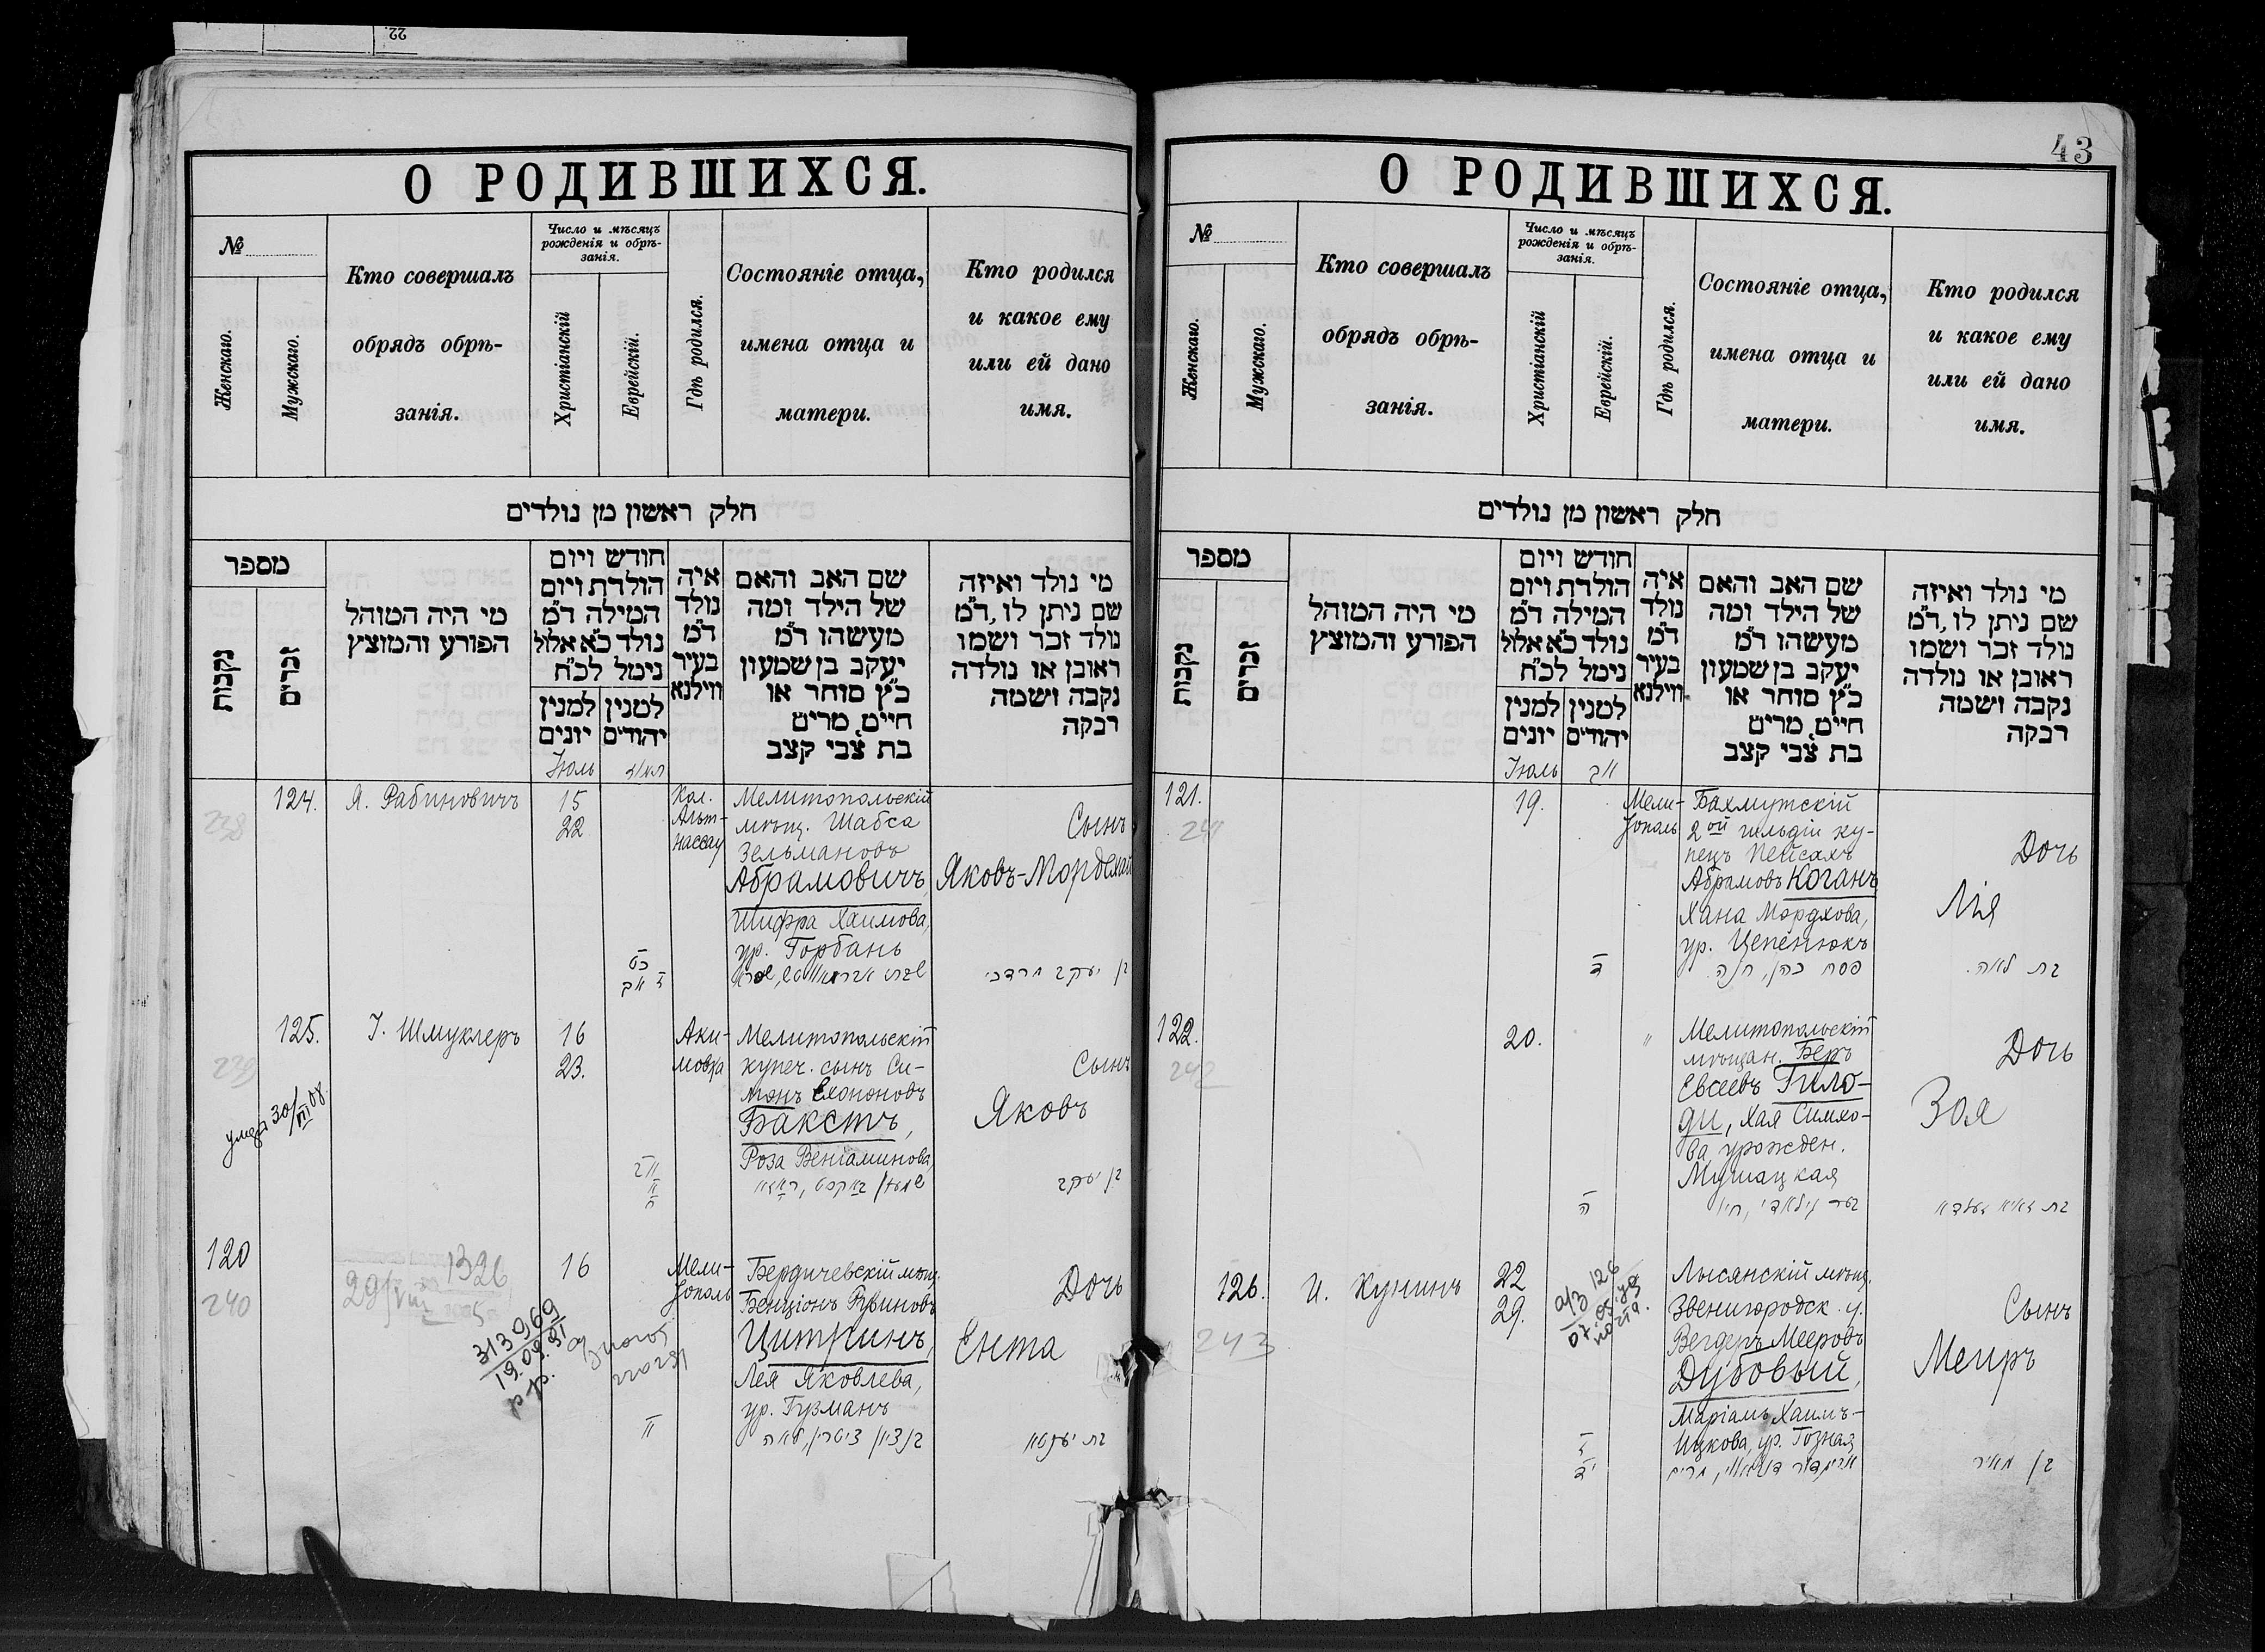 22
О РОДИВШИХСЯ.
№
Женскаго.
Мужскаго.
Кто совершалъ
обрядъ обрѣ-
занія.
Число и мѣсяцъ
рожденія и обрѣ-
занія.
Христіанскій
Еврейскій.
Гдѣ родился.
Состояніе отца,
имена отца и
матери.
Кто родился
и какое ему
или ей дано
имя.
חלק ראשון מן נולדים
מספר
נקבות
זכרים
מי היה המוהל
הפורע והמוצץ
חודש ויום
הולדת ויום
המילה ד״מ
נולד כ״א אלול
נימל לכ״ח
למנין
יונים
למנין
יהודים
איה
נולד
ד״מ
בעיר
ווילנא
שם האב והאם
של הילד ומה
מעשהו ד״מ
יעקב בן שמעון
כ״ץ סוחר או
חיים, מרים
בת צבי קצב
מי נולד ואיזה
שם ניתן לו, ד״מ
נולד זכר ושמו
ראובן או נולדה
נקבה ושמה
רבקה
Іюль
תמוז
124.
238
Я. Рабиновичъ
15
22
כט
ז אב
Кол.
Альт-
Нассау
Мелитопольскій
мѣщ. Шабса
Зельмановъ
Абрамовичъ,
Шифра Хаимова,
ур. Горбань
Сынъ
Яковъ-Мордехай
בן יעקב מרדכי
125.
239
умер 30/VII 08.
І. Шмуклеръ
16
23.
Аки-
мовка
Мелитопольскій
купеч. сынъ Си-
монъ
Бакстъ,
Роза Веніаминова
Сынъ
Яковъ
בן יעקב
120
240
1326
29/VIII
313969
19.09.91
16
Мели-
тополь
Бердичевскій мѣщ.
Бенціонъ Рувиновъ
Цитринъ,
Лея Яковлева,
ур. Гузманъ
בן ציון ציטרין, לאה
Дочь
Ента
בת יענטא
43
О РОДИВШИХСЯ.
№
Женскаго.
Мужскаго.
Кто совершалъ
обрядъ обрѣ-
занія.
Число и мѣсяцъ
рожденія и обрѣ-
занія.
Христіанскій
Еврейскій.
Гдѣ родился.
Состояніе отца,
имена отца и
матери.
Кто родился
и какое ему
или ей дано
имя.
חלק ראשון מן נולדים
מספר
נקבות
זכרים
מי היה המוהל
הפורע והמוצץ
חודש ויום
הולדת ויום
המילה ד״מ
נולד כ״א אלול
נימל לכ״ח
למנין
יונים
למנין
יהודים
איה
נולד
ד״מ
בעיר
ווילנא
שם האב והאם
של הילד ומה
מעשהו ד״מ
יעקב בן שמעון
כ״ץ סוחר או
חיים, מרים
בת צבי קצב
מי נולד ואיזה
שם ניתן לו, ד״מ
נולד זכר ושמו
ראובן או נולדה
נקבה ושמה
רבקה
Іюль
אב
121.
241
19.
ד
Мели-
тополь
Бахмутскій
2ой гильдіи ку-
пецъ Пейсахъ
Абрамовъ Коганъ
Хана Мордхова,
ур. Цепенюкъ
פסח כהן, חנה
Дочь
Лія
בת לאה.
122.
242
20.
ה
"
Мелитопольскій
мѣщан. Беръ
Евсеевъ Гило-
ди, Хая Симхо-
ва урожден.
Мушацкая
Дочь
Зоя
126.
243
И. Кунинъ
22
29.
а/з 126
ז
יד
Лысянскій мѣщ.
Звенигородск. у.
Вегдеръ Мееровъ
Дубовый,
Маріамъ Хаимъ-
Ицкова, ур. Гозная
Сынъ
Меиръ
בן מאיר